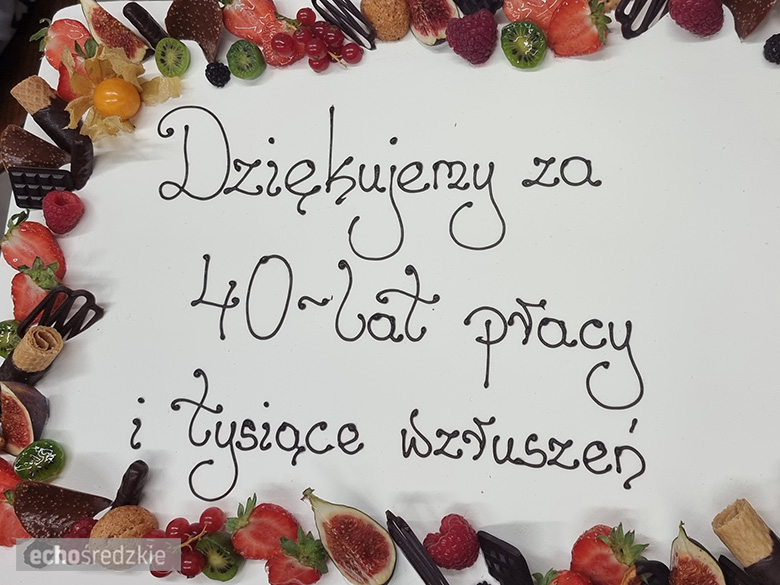 Dziękujemy za
40-lat pracy
i tysiące wzruszeń
echośredzkie